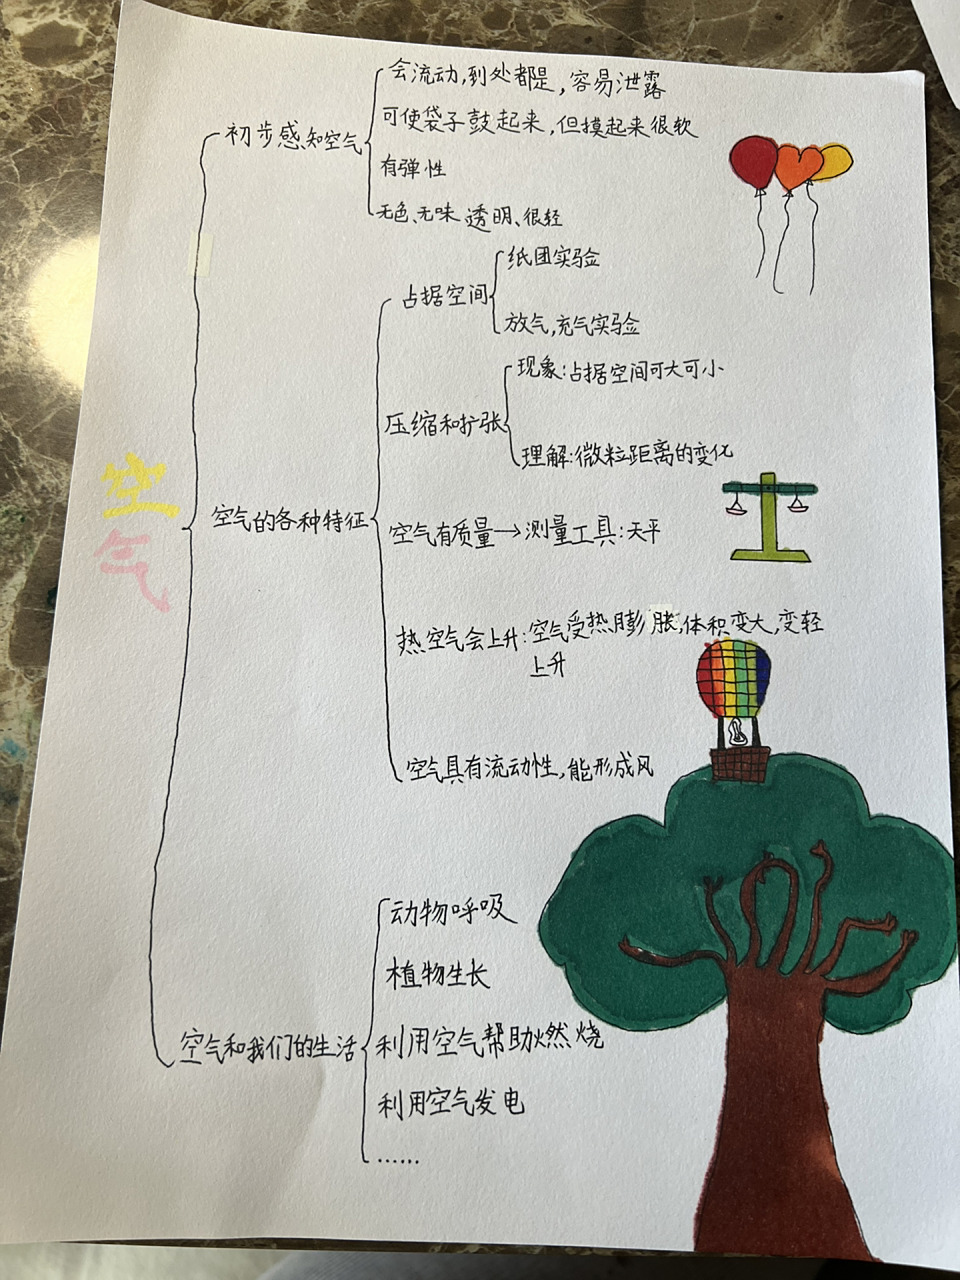 空气
初步感知空气
会流动,到处都是,容易泄露
可使袋子鼓起来,但摸起来很软
有弹性
无色、无味、透明、很轻
空气的各种特征
占据空间
纸团实验
放气,充气实验
压缩和扩张
现象:占据空间可大可小
理解:微粒距离的变化
空气有质量→测量工具:天平
热空气会上升:空气受热膨胀,体积变大,变轻
上升
空气具有流动性,能形成风
空气和我们的生活
动物呼吸
植物生长
利用空气帮助燃烧
利用空气发电
......